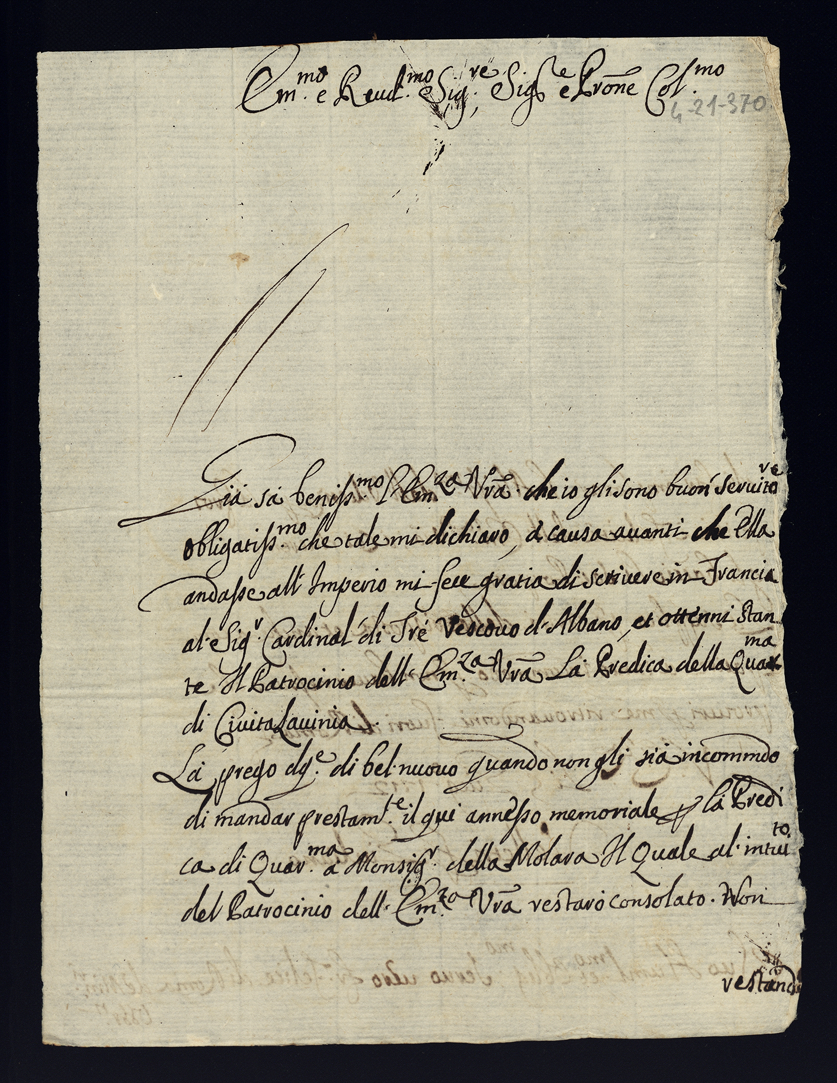 Em.mo e Reud.mo Sig.re, Sig.re e Prõne Col.mo
4-21-370
Già sà beniss.mo l'Em.za Vrã che io gli sono buon seruit.re
obligatiss.mo che tale mi dichiaro, à causa auanti che Ella
andasse all'Imperio mi fece gratia di scriuere in Francia
al Sig.r Cardinal di Tré Vescouo d'Albano, et ottenni stan
te Il Patrocinio dell'Em.za Vrã La Predica della Quar.ma
di Ciuita Lauinia.
La prego dq.e di bel nuouo quando non gli sia incommdo
di mandar prestam.te il qui annesso memoriale p la Predi
ca di Quar.ma à Monsig.r della Molara Il Quale al intuito
del Patrocinio dell'Em.za Vrã restarò consolato. Non
restand